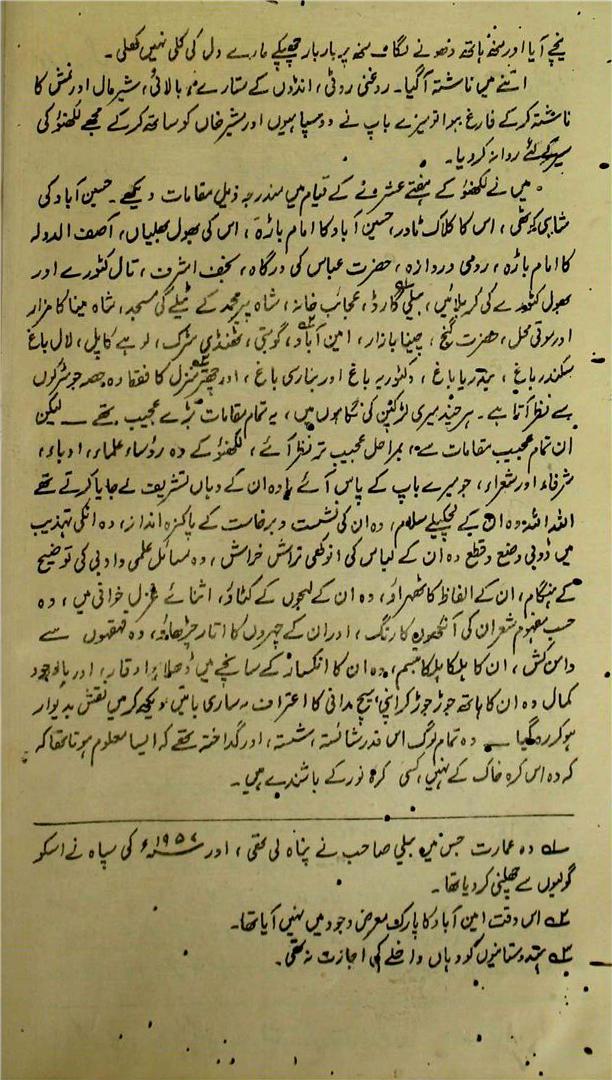 نیچے آیا اور منھ ہاتھ دھونے لگا۔ منھ پر بار بار چھپکے مارے دل کی کلی نہیں کھلی۔
اتنے میں ناشتہ آگیا۔ روغنی روٹی، انڈوں کے ستارے، بالائی، شیرمال اور نمش کا
ناشتہ کرکے فارغ ہوا تو میرے باپ نے دو سپاہیوں اور بشیر خاں کو ساتھ کرکے مجھے لکھنؤ کی
سیر کے لئے روانہ کردیا۔
میں نے لکھنؤ کے ہفتے عشرے کے قیام میں مندرجہ ذیل مقامات دیکھے۔ حسین آباد کی
شاہی کوٹھی، اس کا کلاک ٹاور، حسین آباد کا امام باڑہ، اس کی بھول بھلیاں، آصف الدولہ
کا امام باڑہ، رومی دروازہ، حضرت عباس کی درگاہ، نجف اشرف، تال کٹورے اور
پھول کٹورے کی کربلائیں، بیلی گارڈ، عجائب خانہ، شاہ پیر محمد کے ٹیلے کی مسجد، شاہ مینا کا مزار
اور موتی محل، حضرت گنج، چینا بازار، امین آباد، گومتی، ٹھنڈی سڑک، لوہے کا پل، لال باغ
سکندر باغ، بندریا باغ، وکٹوریہ باغ اور بنارسی باغ، اور چھتر منزل کا فقط وہ حصہ جو سڑکوں
سے نظر آتا ہے۔ ہر چند میری لڑکپن کی نگاہوں میں، یہ تمام مقامات بڑے عجیب تھے ـــ لیکن
ان تمام عجیب مقامات سے، بمراحل عجیب تر نظر آئے، لکھنؤ کے وہ رؤساء، علماء، ادباء،
شرفاء اور شعراء، جو میرے باپ کے پاس آتے یا وہ ان کے وہاں تشریف لے جایا کرتے تھے
اللہ اللہ وہ ان کے لچکیلے سلام، وہ ان کی نشست و برخاست کے پاکیزہ انداز، وہ انکی تہذیب
میں ڈوبی وضع و قطع وہ ان کے لباس کی انوکھی تراش خراش، وہ مسائل علمی و ادبی کی توضیح
کے ہنگام، ان کے الفاظ کا ٹھہراؤ، وہ ان کے لہجوں کے کٹاؤ، اثنائے غزل خوانی میں، وہ
حسب مفہوم شعر ان کی آنکھوں کا رنگ، اور ان کے چہروں کا اتار چڑھاؤ، وہ قہقہوں سے
دامن کش، ان کا ہلکا ہلکا تبسم، وہ ان کا انکسار کے سانچے میں ڈھلا ہوا وقار، اور باوجود
کمال وہ ان کا ہاتھ جوڑ جوڑ کر اپنی ہیچ مدانی کا اعتراف۔ یہ ساری باتیں دیکھ کر میں نقش بدیوار
ہو کر رہ گیا ـــ وہ تمام لوگ اس قدر شائستہ، شستہ، اور گداختہ تھے کہ ایسا معلوم ہوتا تھا کہ
کہ وہ اس کرۂ خاک کے نہیں، کسی کرۂ نور کے باشندے ہیں۔
۱؎ وہ عمارت جس میں بیلی صاحب نے پناہ لی تھی، اور ۱۹۵۷ء کی سپاہ نے اسکو
گولیوں سے چھلنی کردیا تھا۔
۲؎ اس وقت امین آباد کا پارک معرض وجود میں نہیں آیا تھا۔
۳؎ ہندوستانیوں کو وہاں داخلے کی اجازت نہ تھی۔